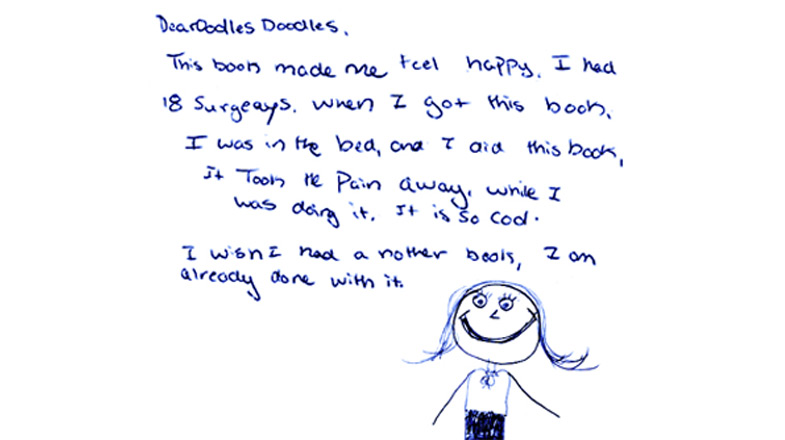 Dear Oodles Doodles,
This book made me feel happy. I had
18 Surgeays. when I got this book.
I was in the bed, and I did this book,
it Took the Pain away. while I
was doing it. It is so cool.
I wish I had a nother book, I am
already done with it.